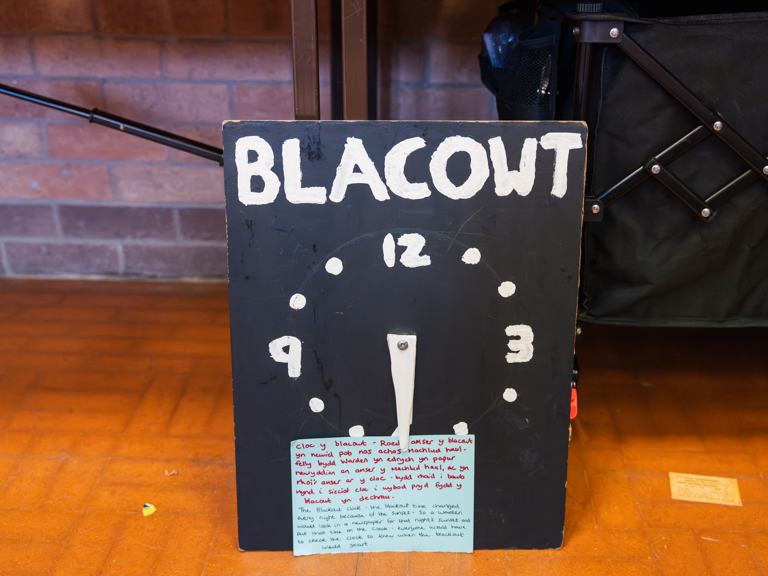 BLACOWT
12
9
3
cloc y blacowt - Roedd amser y blacowt
yn newid pob nos achos machlud haul -
felly bydd Warden yn edrych yn papur
newyddion an amser y machlud haul, ac yn
rhoi'r amser ar y cloc - bydd rhaid i bawb
mynd i siecio'r cloc i wybod pryd fydd y
blacowt yn dechrau.
The Blackout clock - the blackout time changed
every night because of the sunset - so a warden
would look in a newspaper for that night's sunset and
put that time on the clock - everyone would have
to check the clock to know when the blackout
would start